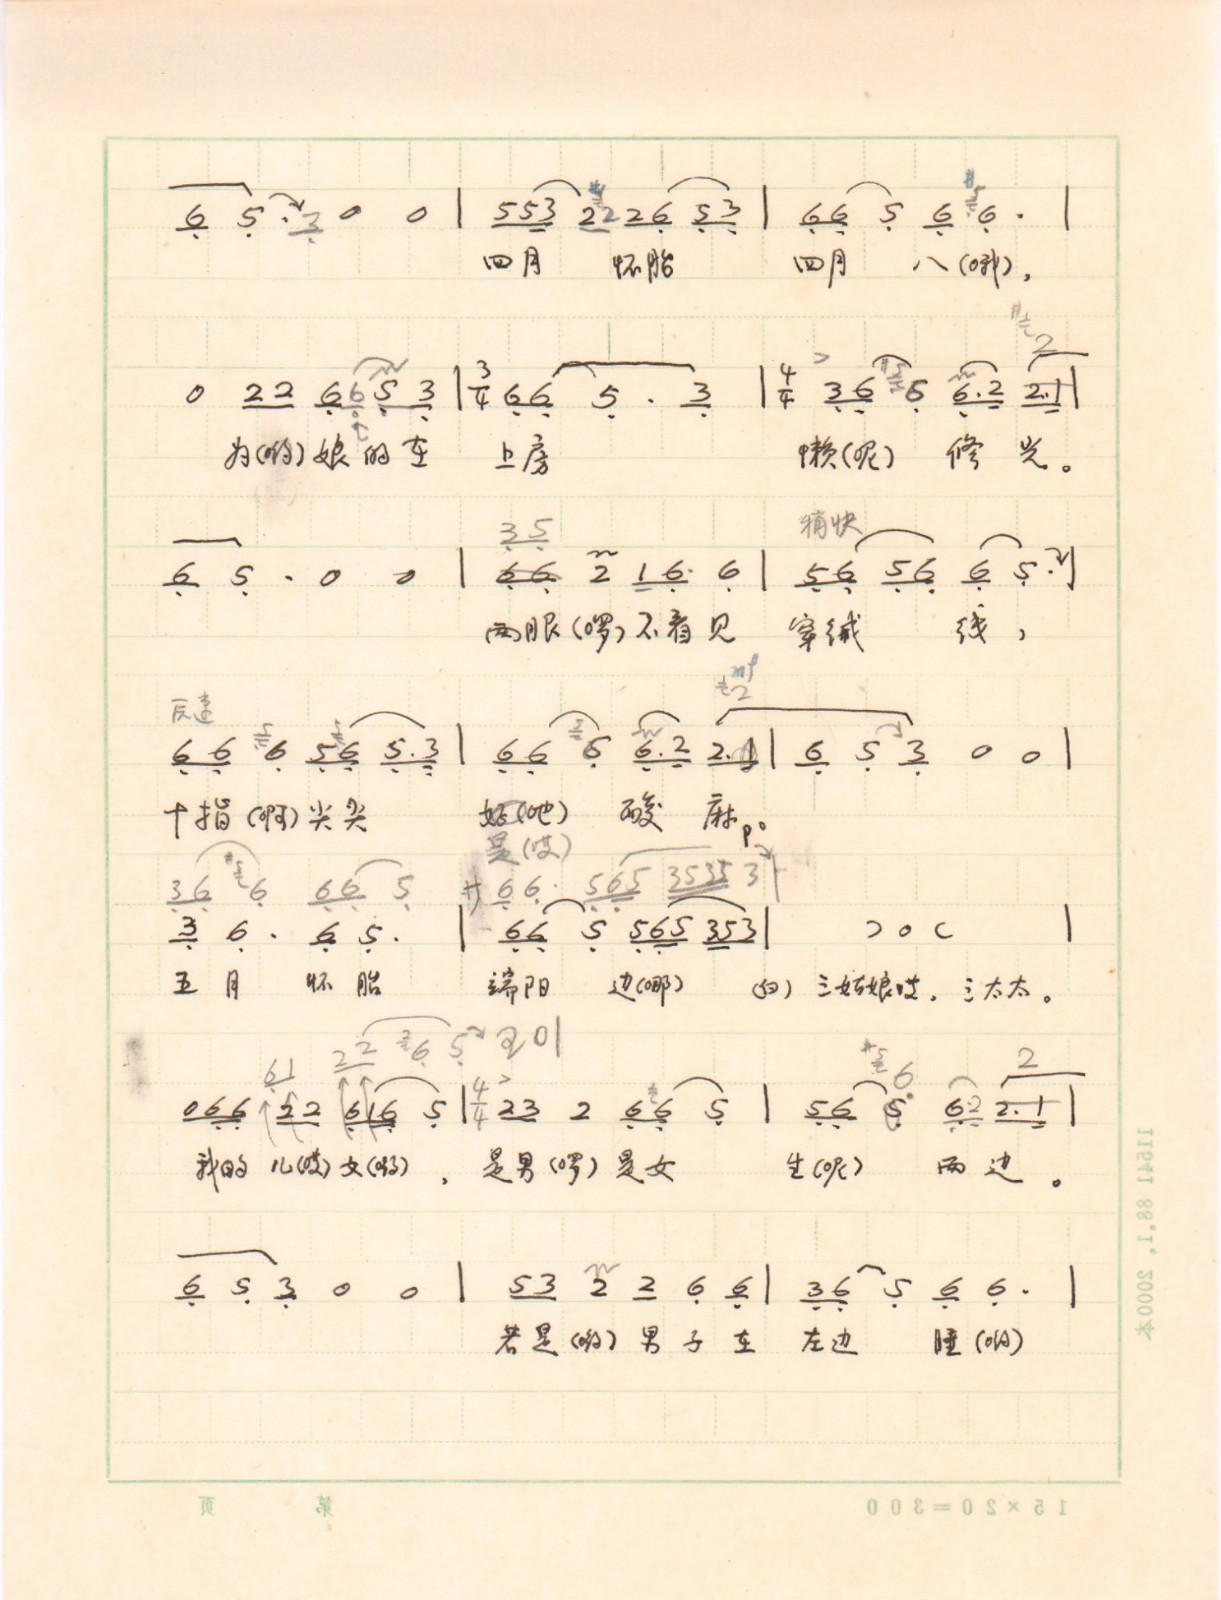 6 5 · 3 0 0 | 553 22 26 53 | 66 5 6 6 · |
四月 怀胎 四月 八(哦),
0 22 66 5 3 | 3/4 66 5 · 3 | 4/4 36 6 6·2 2·1 |
为(哟)娘的在 上房 懒(呢) 修 光。
3 5 痛快
6 5 · 0 0 | 66 2 16· 6 | 56 56 6 5· |
两眼(啰)不看见 穿绒 线,
mf
2
66 6 56 5·3 | 66 6 6·2 2·1 | 6 5 3 0 0 |
十指(啊)尖尖 好(吔) 酸 麻。
是(哎)
36 6 66 5 66· 565 3535 3
3 6· 6 5· | 66 5 565 353 | 0 |
五月 怀胎 端阳 边(哪) (白)三姑娘哎,三太太。
61 22 6 5
066 22 616 5 | 4/4 23 2 66 5 | 56 5 6·2 2·1 |
我的 儿(哎)女(哟), 是男(啰)是女 生(呢) 两边。
6 5 3 0 0 | 53 2 2 6 6 | 36 5 6 6· |
若是(哟)男子在 左边 睡(哟)
第 页
15×20=300
11541 88.1. 2000本